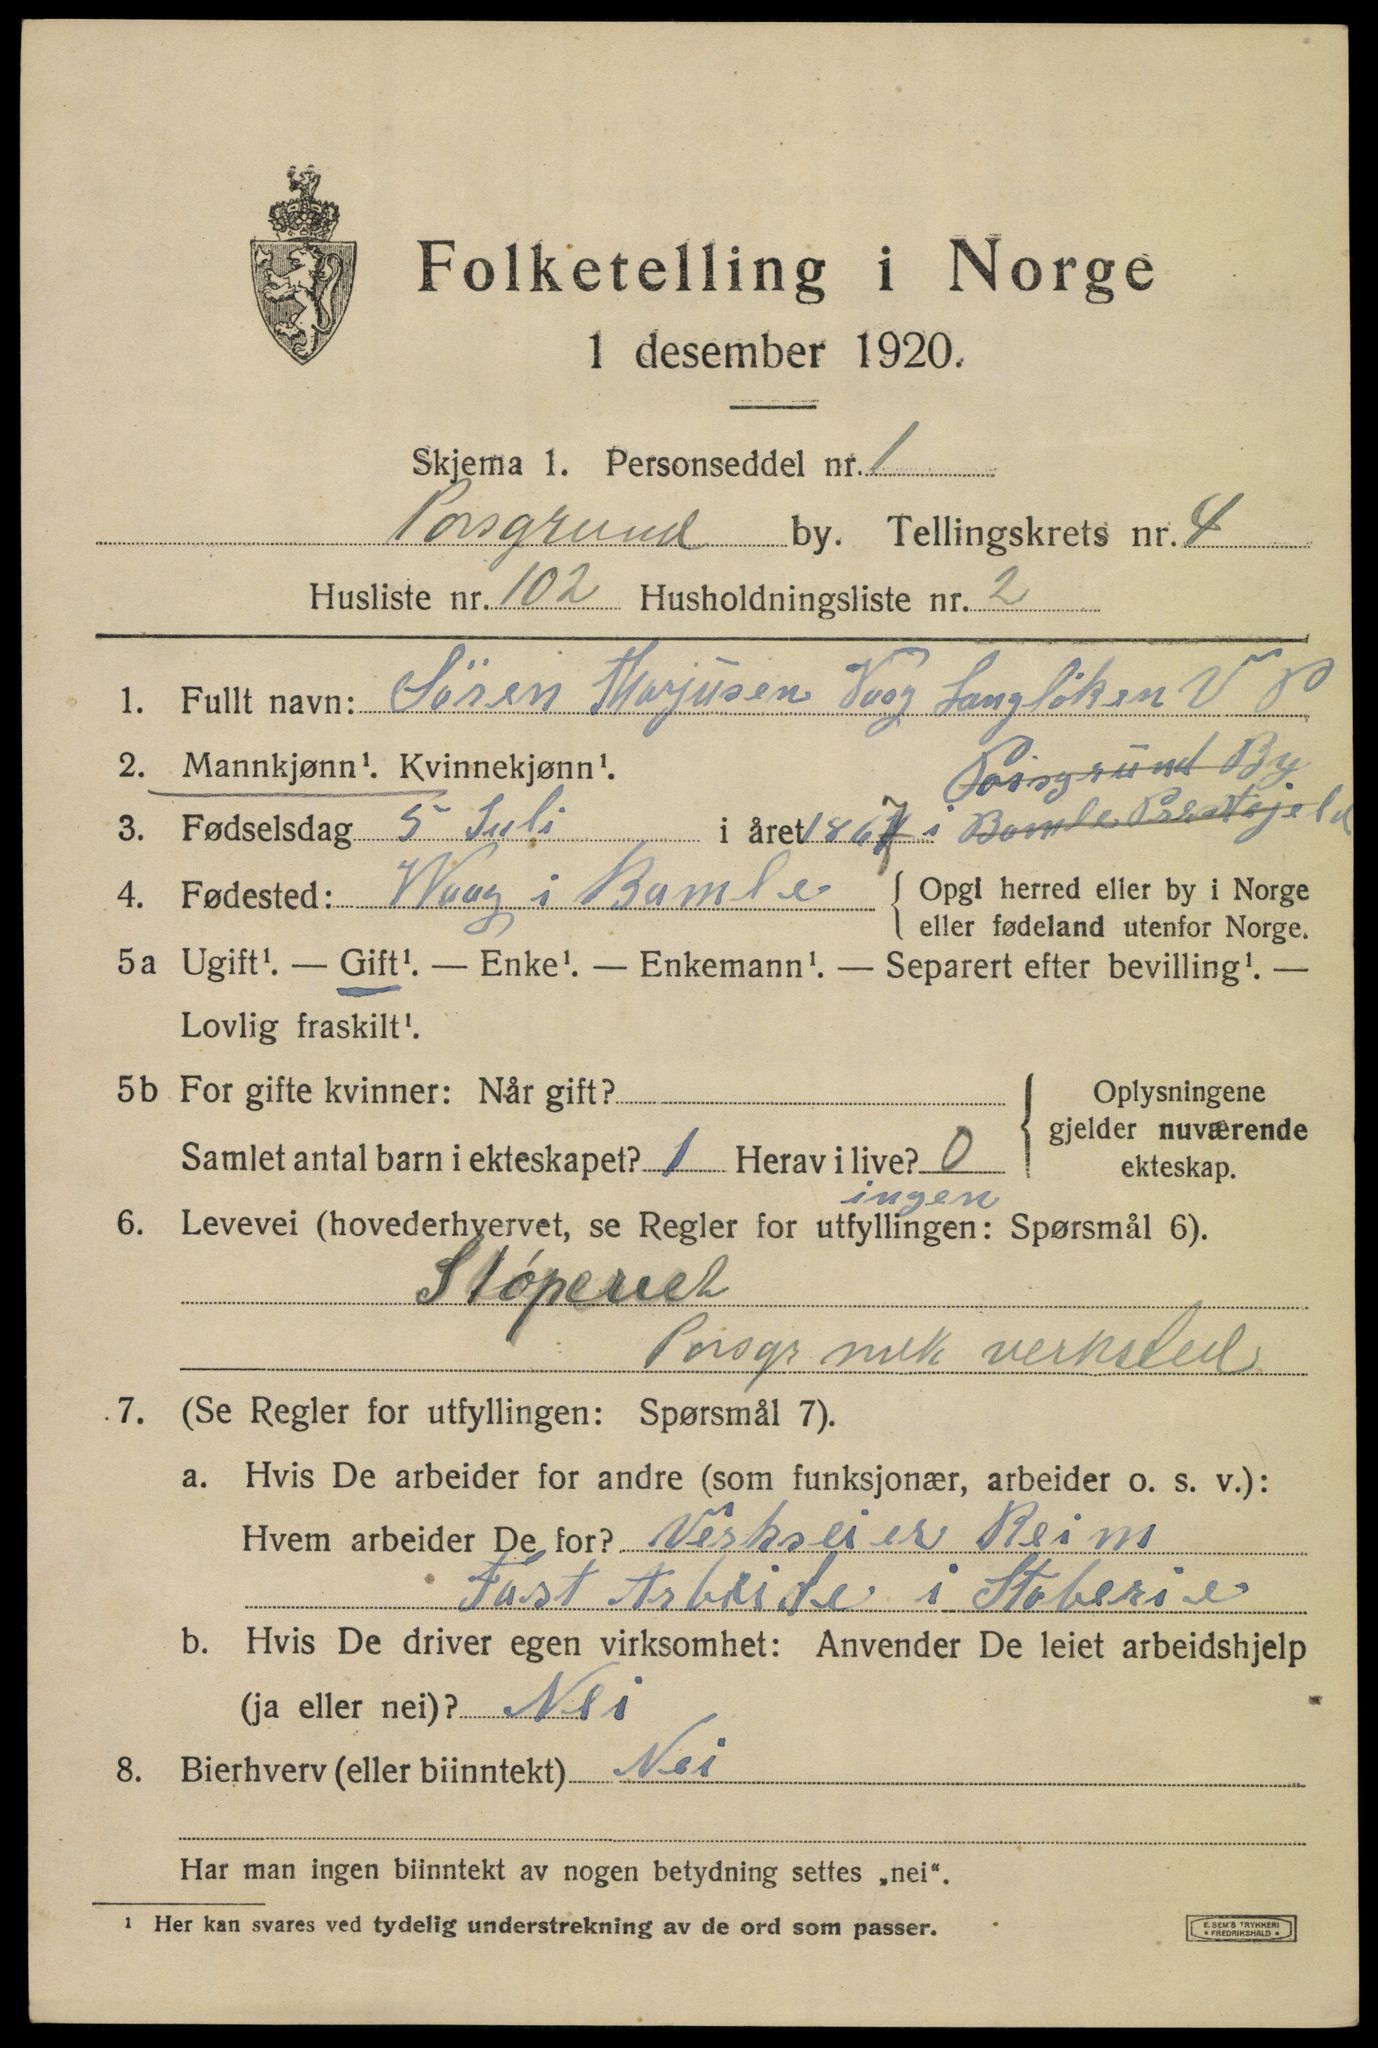 Folketelling i Norge
1 desember 1920.
Skjema 1. Personseddel nr. 1
Porsgrund by. Tellingskrets nr. 4
Husliste nr. 102 Husholdningsliste nr. 2
1. Fullt navn: Sören Marjusen Vaag Langløken V P
2. Mannkjønn¹. Kvinnekjønn¹. Porsgrund By
3. Fødselsdag 5 Juli i året 1867 i Bamle Prestgjeld
4. Fødested: Waag i Bamle { Opgl herred eller by i Norge
eller fødeland utenfor Norge.
5a Ugift¹. — Gift¹. — Enke¹. — Enkemann¹. — Separert efter bevilling¹. —
Lovlig fraskilt¹.
5b For gifte kvinner: Når gift? { Oplysningene
gjelder nuværende
ekteskap.
Samlet antal barn i ekteskapet? 1 Herav i live? 0
ingen
6. Levevei (hovederhvervet, se Regler for utfyllingen: Spørsmål 6).
Porsgr mek verksted
7. (Se Regler for utfyllingen: Spørsmål 7).
a. Hvis De arbeider for andre (som funksjonær, arbeider o. s. v.):
Hvem arbeider De for? Verkseier Reim
Fast Arbeide i Stoberie
b. Hvis De driver egen virksomhet: Anvender De leiet arbeidshjelp
(ja eller nei)? Nei
8. Bierhverv (eller biinntekt) Nei
Har man ingen biinntekt av nogen betydning settes „nei“.
¹ Her kan svares ved tydelig understrekning av de ord som passer.
E. SEM'S TRYKKERI
* FREDRIKSHALD *